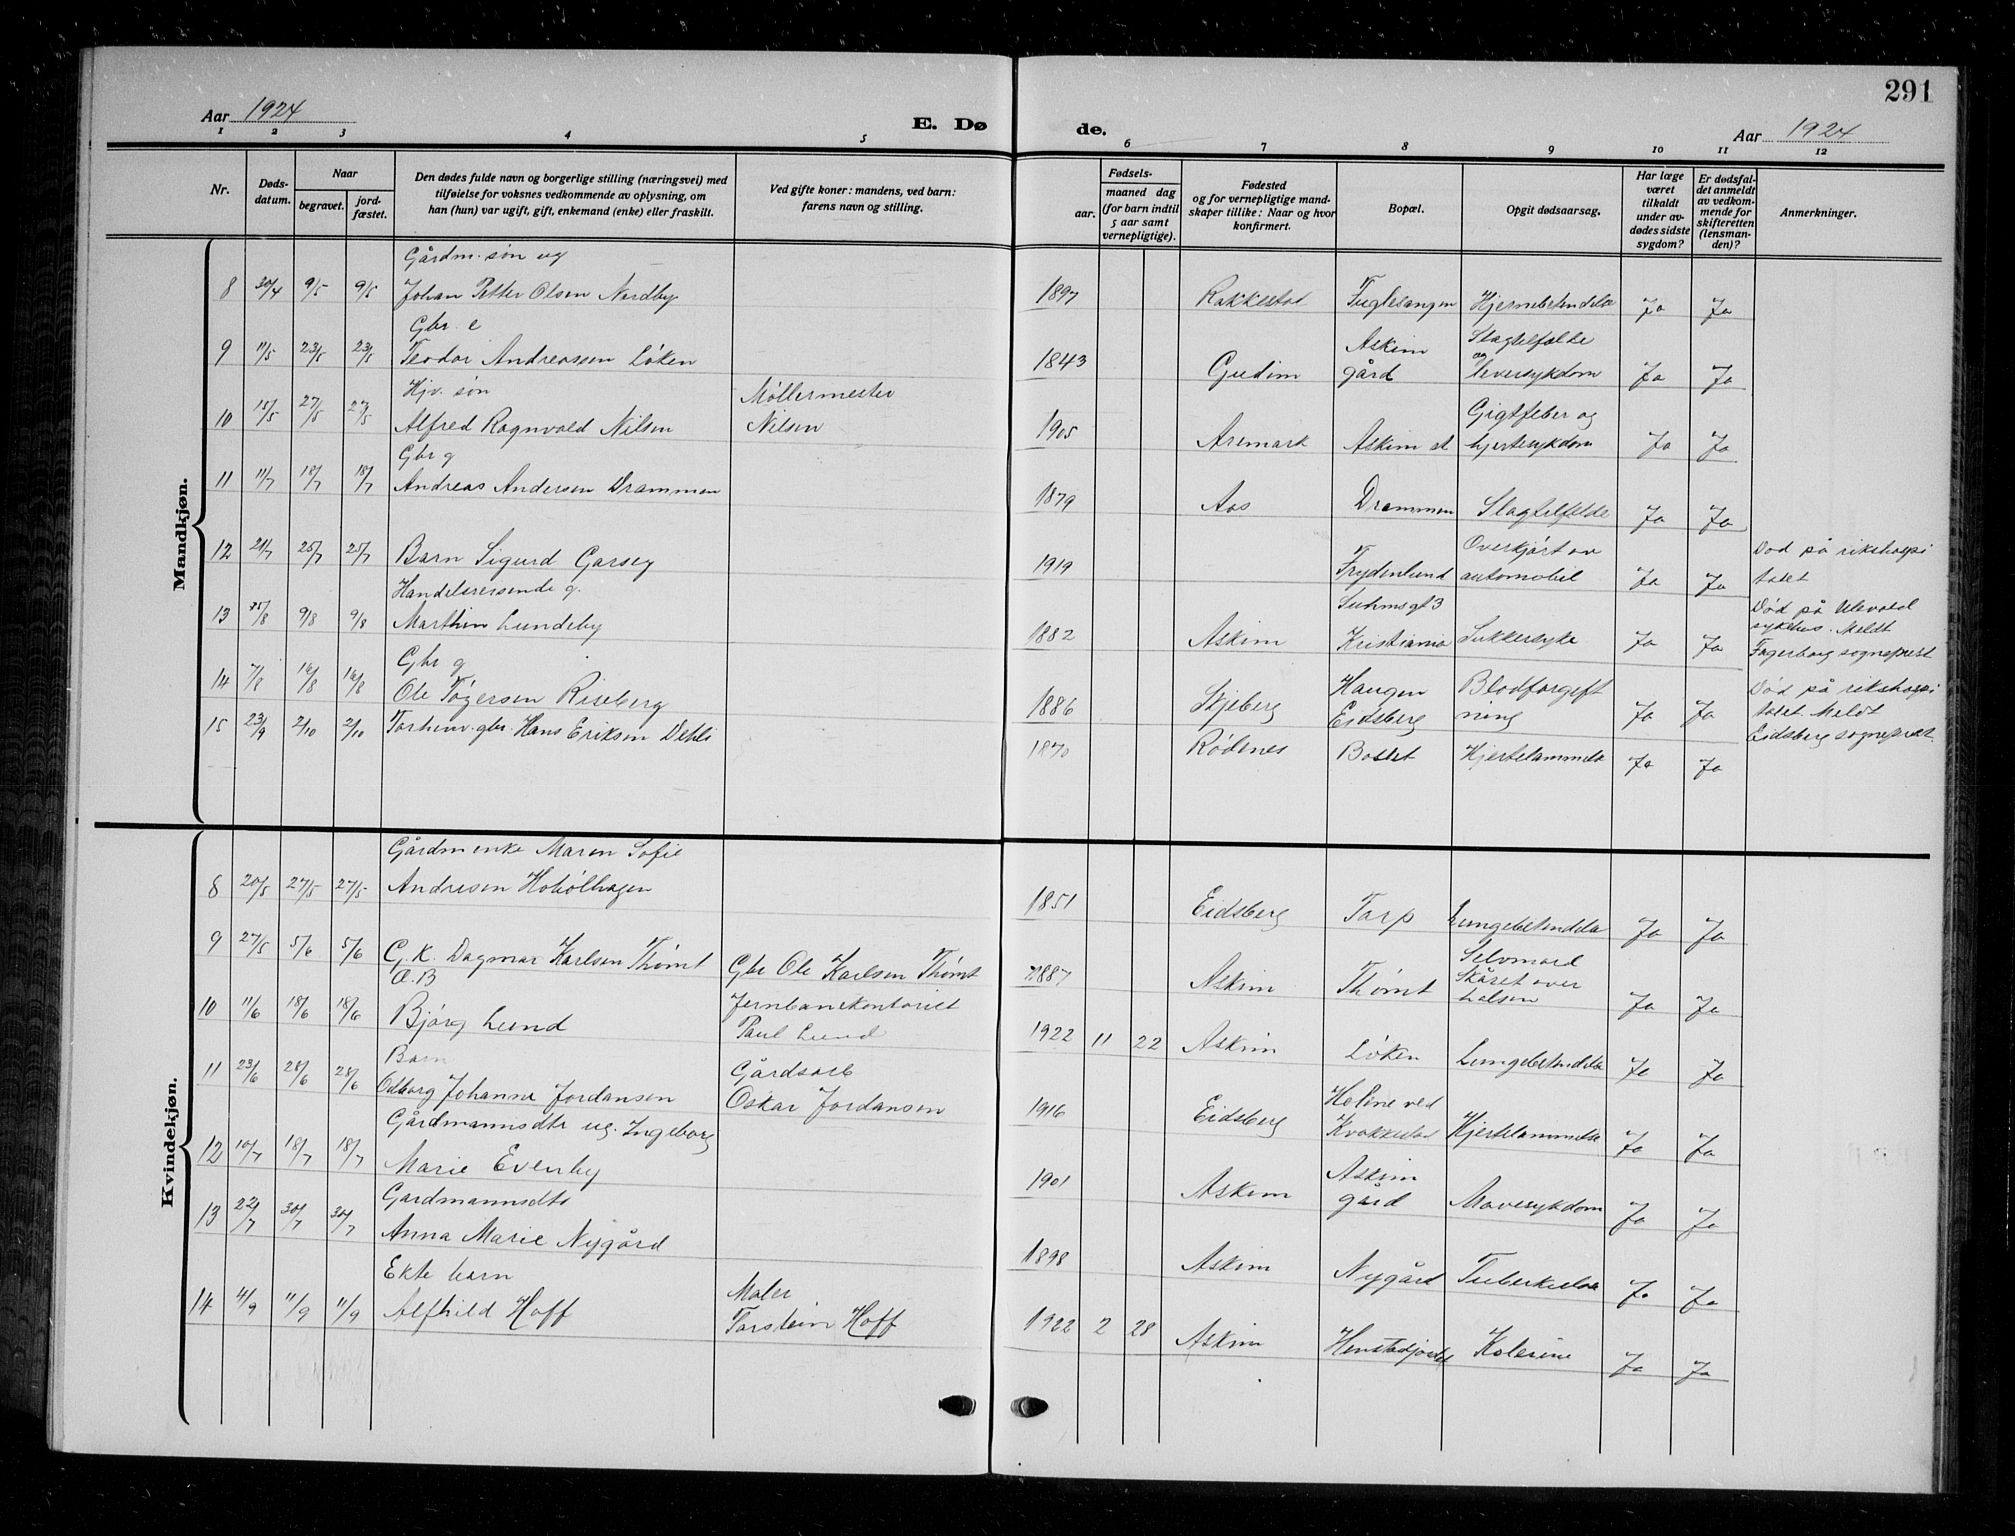 291
Aar 1924
E. Dø
de.
Aar 1924
1 2 3 4 5 6 7 8 9 10 11 12
Nr.
Døds-
datum.
Naar
begravet.
jord-
fæstet.
Den dødes fulde navn og borgerlige stilling (næringsvei) med
tilføielse for voksnes vedkommende av oplysning, om
han (hun) var ugift, gift, enkemand (enke) eller fraskilt.
Ved gifte koner: mandens, ved barn:
farens navn og stilling.
Fødsels-
aar.
maaned dag
(for barn indtil
5 aar samt
vernepligtige).
Fødested
og for vernepligtige mand-
skaper tillike: Naar og hvor
konfirmert.
Bopæl.
Opgit dødsaarsag.
Har læge
været
tilkaldt
under av-
dødes sidste
sygdom?
Er dødsfal-
det anmeldt
av vedkom-
mende for
skifteretten
(lensman-
den)?
Anmerkninger.
Mandkjøn.
Gårdm. søn ug
8 30/4 9/5 9/5 Johan Petter Olsen Nordby 1897 Rakkestad Fuglesangen Hjernebetendelse Ja Ja
Gbr. e
9 11/5 23/5 23/5 Teodor Andreassen Løken 1843 Gudim Askim gård Slagtilfælde og leversykdom Ja Ja
Hjv. søn Møllermester
10 15/5 27/5 27/5 Alfred Ragnvald Nilsen Nilsen 1905 Aremark Askim st Gigtfeber og hjertesykdom Ja Ja
Gbr g
11 11/7 18/7 18/7 Andreas Andersen Drammen 1879 Aas Drammen Slagtilfelde Ja Ja
12 21/7 25/7 25/7 Barn Sigurd Garseg 1919 Frydenlund Overkjørt av automobil Ja Ja Død på rikshospi
talet
Handelsreisende g.
13 9/8 9/8 Marthin Lundeby 1882 Askim Suhmsgt 3 Kristiania Sukkersyke Ja Ja Død på Ulevold
sykehus. Meldt
Fagerborg sogneprest
Gbr g
14 7/8 16/8 16/8 Ole Tøgersen Riseberg 1886 Skjeberg Haugen Eidsberg Blodforgift
ning Ja Ja Død på rikshospi
talet. Meldt
Eidsberg sogneprest.
15 23/9 2/10 2/10 Forhenv. gbr. Hans Eriksen Dehli 1870 Rødenes Boslet Hjertelammelse Ja Ja
Kvindekjøn.
Gårdm enke Maren Sofie
8 20/5 27/5 27/5 Andresen Hobølhagen 1851 Eidsberg Torp Lungebetendelse Ja Ja
9 27/5 5/6 5/6 G. K. Dagmar Karlsen Thømt Gbr Ole Karlsen Thømt 1887 Askim Thømt Selvmord
Skåret over
halsen Ja Ja
Æ. B Jernbanekontorist
10 11/6 18/6 18/6 Bjørg Lund Paul Lund 1922 11 22 Askim Løken Lungebetendelse Ja Ja
Barn Gårdsarb
11 23/6 28/6 28/6 Odborg Johanne Jordansen Oskar Jordansen 1916 Eidsberg Holene ved Kvakkestad Hjertelammelse Ja Ja
Gårdmannsdtr ug. Ingeborg
12 10/7 18/7 18/7 Marie Evenby 1901 Askim Askim gård Mavesykdom Ja Ja
Gardmannsdtr
13 22/7 30/7 30/7 Anna Marie Nygård 1898 Askim Nygård Tuberkulose Ja Ja
Ekte barn Maler
14 4/9 11/9 11/9 Alfhild Hoff Torstein Hoff 1922 2 28 Askim Henstadjordet Kolerine Ja Ja